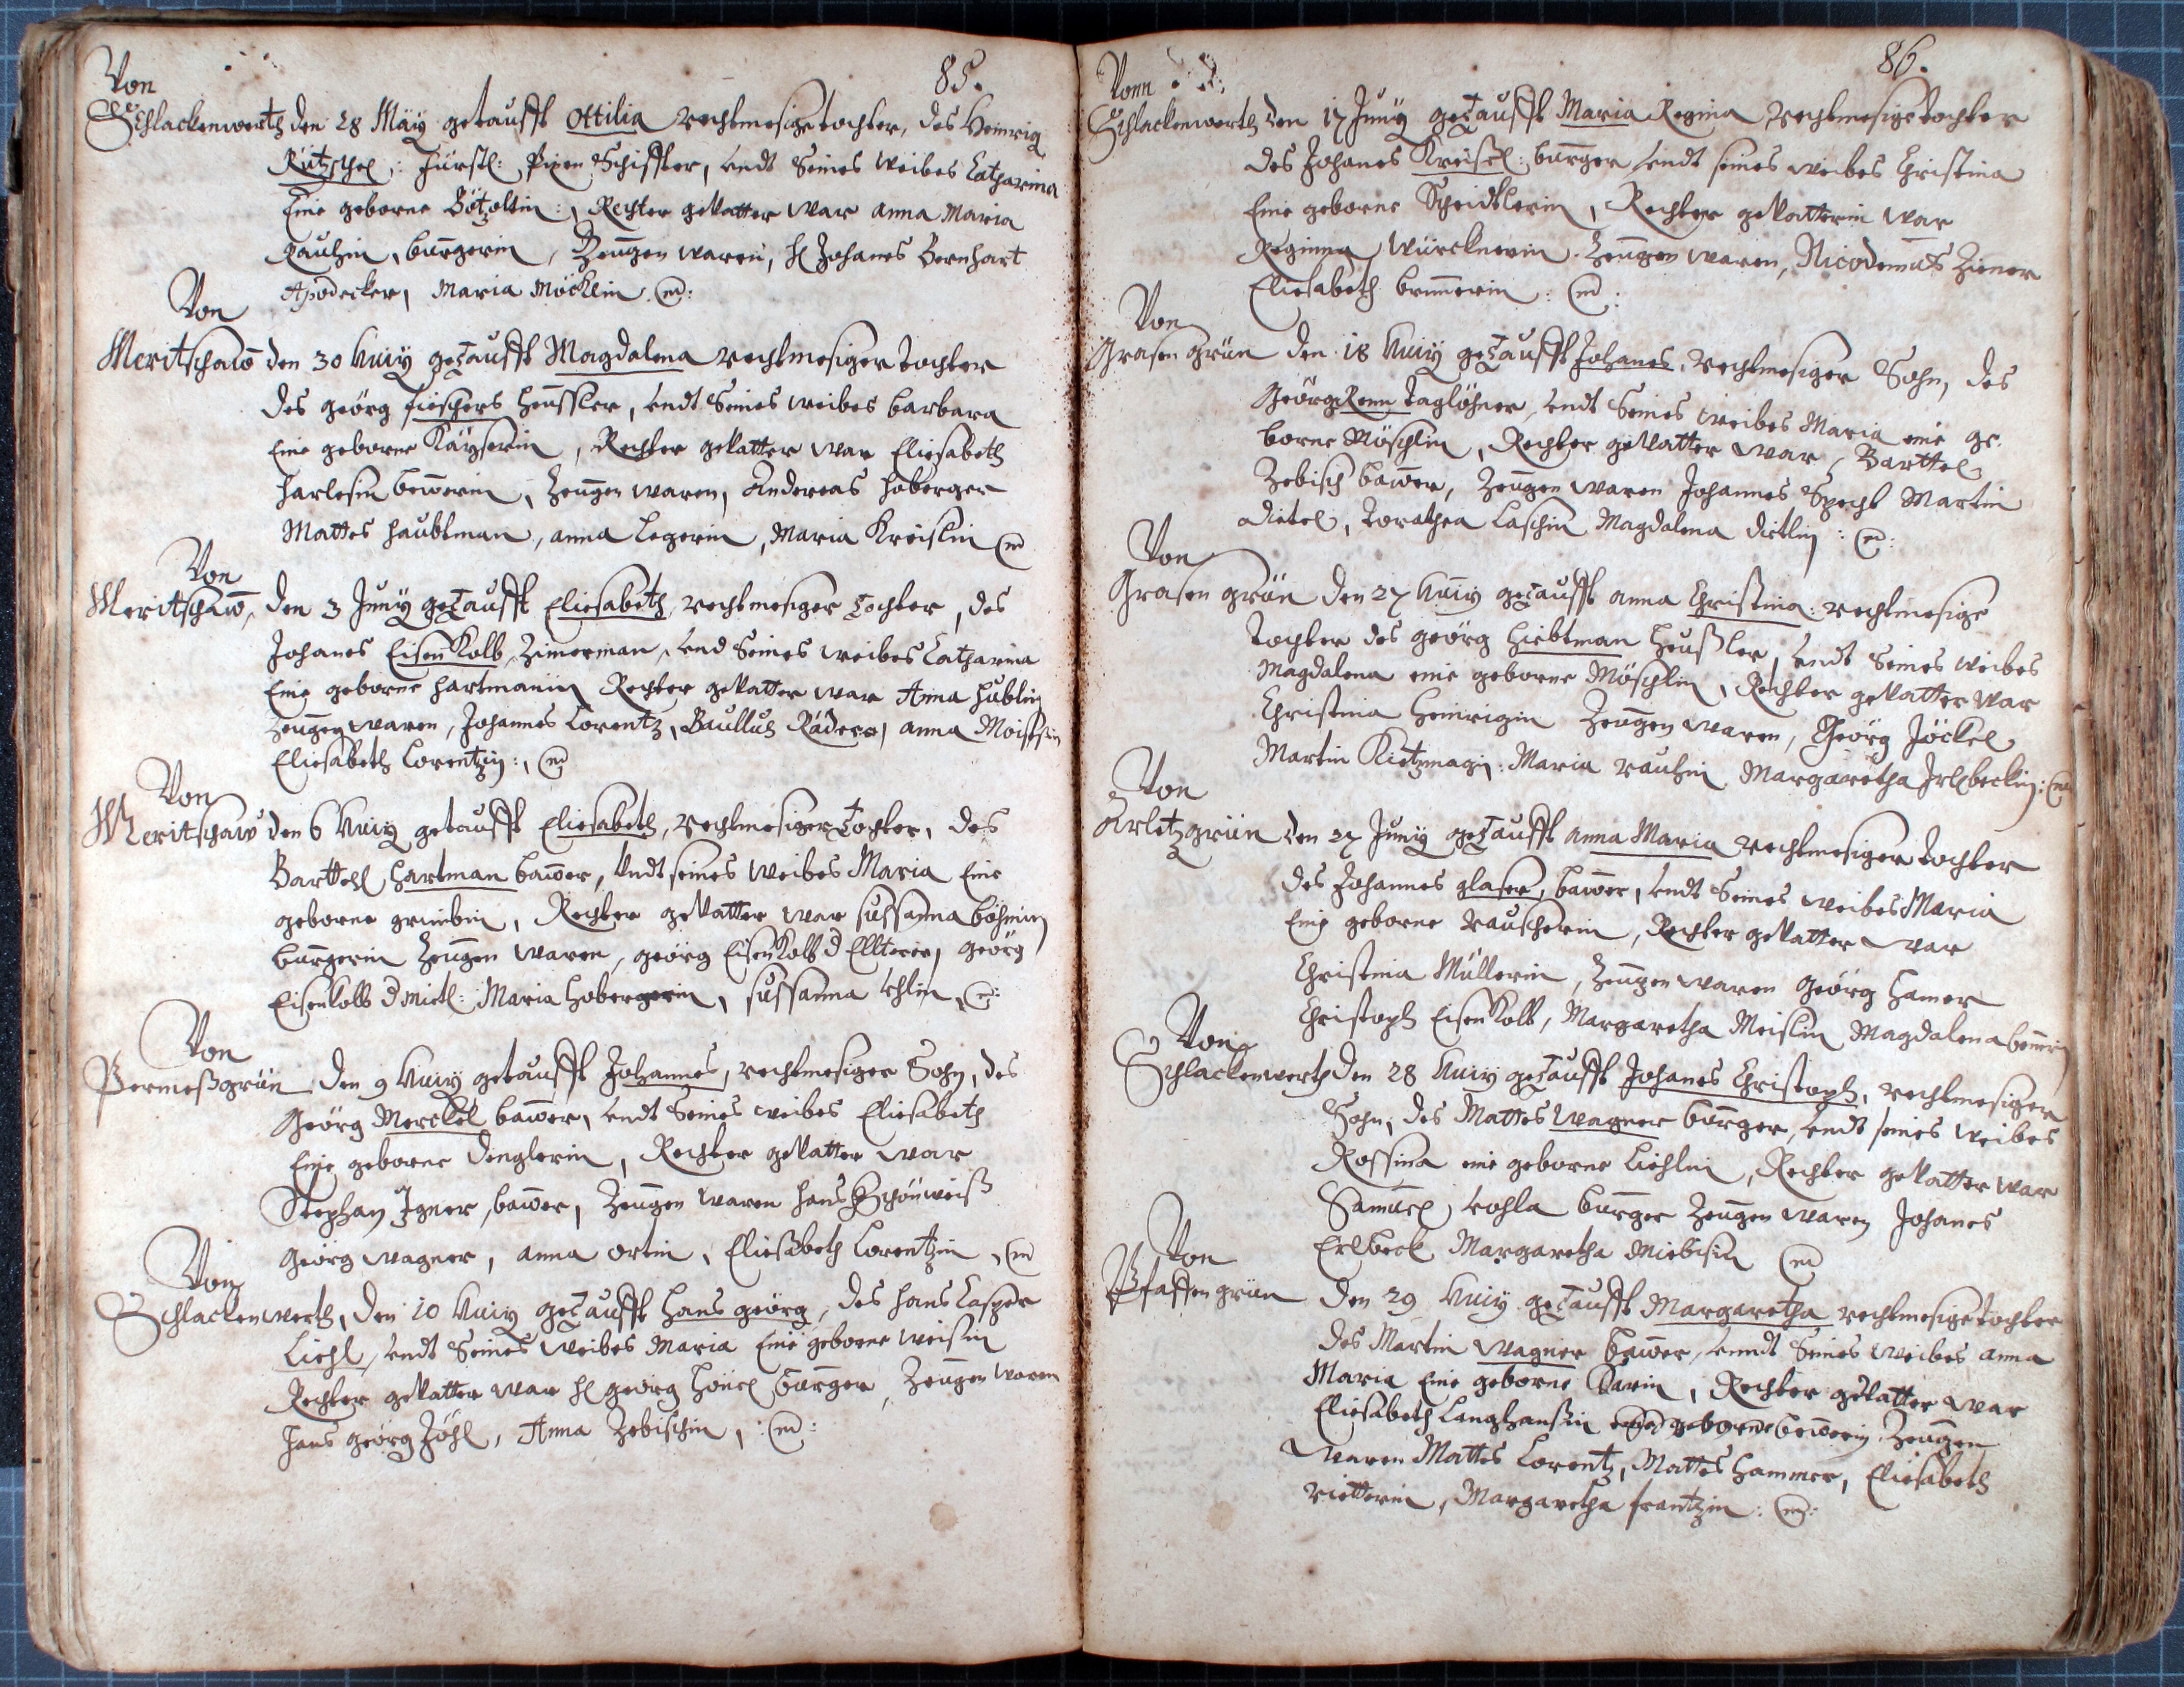 85.
Von
Schlackenwerth den 28 Maÿ getaufft Ottilia rechtmesige tochter, des Heinrig
Rützschel: fürstl: Pixen Schiffter, undt Seines weibes Catharina
Eine geborne Götzoltin:, Rechter gevatter war Anna Maria
Rauhin, burgerin, Zeugen waren, H Johanes Bernhart
Apodecker, Maria Möchlin
Von
Meritschaw den 30 huiÿ getaufft Magdalena rechtmesiger tochter
des geörg fischers heussler, undt Seines weibes barbara
Eine geborne Kaÿserin, Rechter gevatter war Eliesabeth
harlesin bewerin, Zeugen waren, Andereas hoberger
Mattes haubtman, anna Legerin, Maria Kreislin
Von
Meritschaw, den 3 Junÿ getaufft Eliesabeth, rechtmesiger tochter, des
Johanes Eisenkolb, Zimerman, und Seines weibes Catharina
Eine geborne hartmanin Rechter gevatter war Anna hüblin
Zeugen waren, Johannes Lorentz, Baullus Räderer, anna Moissin
Eliesabeth Lorentzin:,
Von
Meritschaw den 6 huiÿ getaufft Eliesabeth, rechtmesiger tochter, des
Barttehl hartman bawer, undt seines weibes Maria Eine
geborne, Rechter gevatter war sussanna böhmin
burgerin Zeugen waren, geörg Eisenkolb d Ellterer, georg
Eisenkolb d mitl: Maria hobergerin, sussanna
Von
Permessgrün den 9 huiÿ getaufft Johannes, rechtmesiger Sohn, des
Geörg Merckel bawer, undt Seines weibes Eliesabeth
Eine geborne denglerin, Rechter gevatter war
Stephan Igner, bawer, Zeugen waren hans Schönweiss
Geörg wagner, anna ortin, Eliesabeth Lorentzin,
Von
Schlackenwerth, den 10 huiÿ getaufft hans geörg, des hans Casper
Liehl, undt Seines weibes Maria Eine geborne weissin
Rechter gevatter war H georg burger, Zeugen waren
hans geörg Föhl, Anna Zebischin,
86.
Vonn
Schlackenwerth den 17 Junÿ getaufft Maria Regina rechtmesige tochter
des Johanes Kreissl: burger undt seines weibes Christina
Eine geborne Scheidlerin, Rechter gevatterin war
Reginna würcknerin Zeugen waren, Nicodemus Zimer
Eliesabeth brunnerin:
Von
Grasen grün den 18 huiÿ getaufft Johanes, rechtmesiger Sohn, des
Geörg Renn taglöhner, undt Seines weibes Maria eine ge-
borne Möschlin, Rechter gevatter war, Barttel
Zebisch bawer, Zeugen waren Johannes Specht Martin
dietel, Torathea Laschin Magdalena dietlin:
Von
Grasen grün den 27 huiÿ getaufft anna Christina rechtmesige
tochter des geörg Hiebtman heussler, undt Seines weibes
Magdalena eine geborne Möschlin, Rechter gevatter war
Christina heinrigin Zeugen waren, Geörg Jöckel
Martin Maria rauhin Margaretha Irlbeckin:
Von
Arletzgrün den 27 Junÿ getaufft anna Maria rechtmesiger tochter
des Johannes glaser, bawer, undt Seines weibes Maria
Eine geborne rauscherin, Rechter gevatter war
Christina Müllerin, Zeugen waren Geörg hamer
Christoph Eisenkolb, Margaretha Meislin Magdalena
Von
Schlackenwerth den 28 huiÿ getaufft Johanes Christoph, rechtmesiger
Sohn, des Mattes wagner burger, undt seines weibes
Rossina eine geborne Liehlin, Rechter gevatter war
Samuel burger Zeugen waren Johanes
Erlbeck Margaretha
Von
Pfaffengrün den 29 huiÿ getaufft Margaretha rechtmesige tochter
des Martin wagner bawer, unndt Seines weibes anna
Maria Eine geborne, Rechter gevatter war
Eliesabeth Langhanssin eine geborne bewerin Zeugen
waren Mattes Lorentz, Mattes hammer, Eliesabeth
rietterin, Margaretha frantzin: